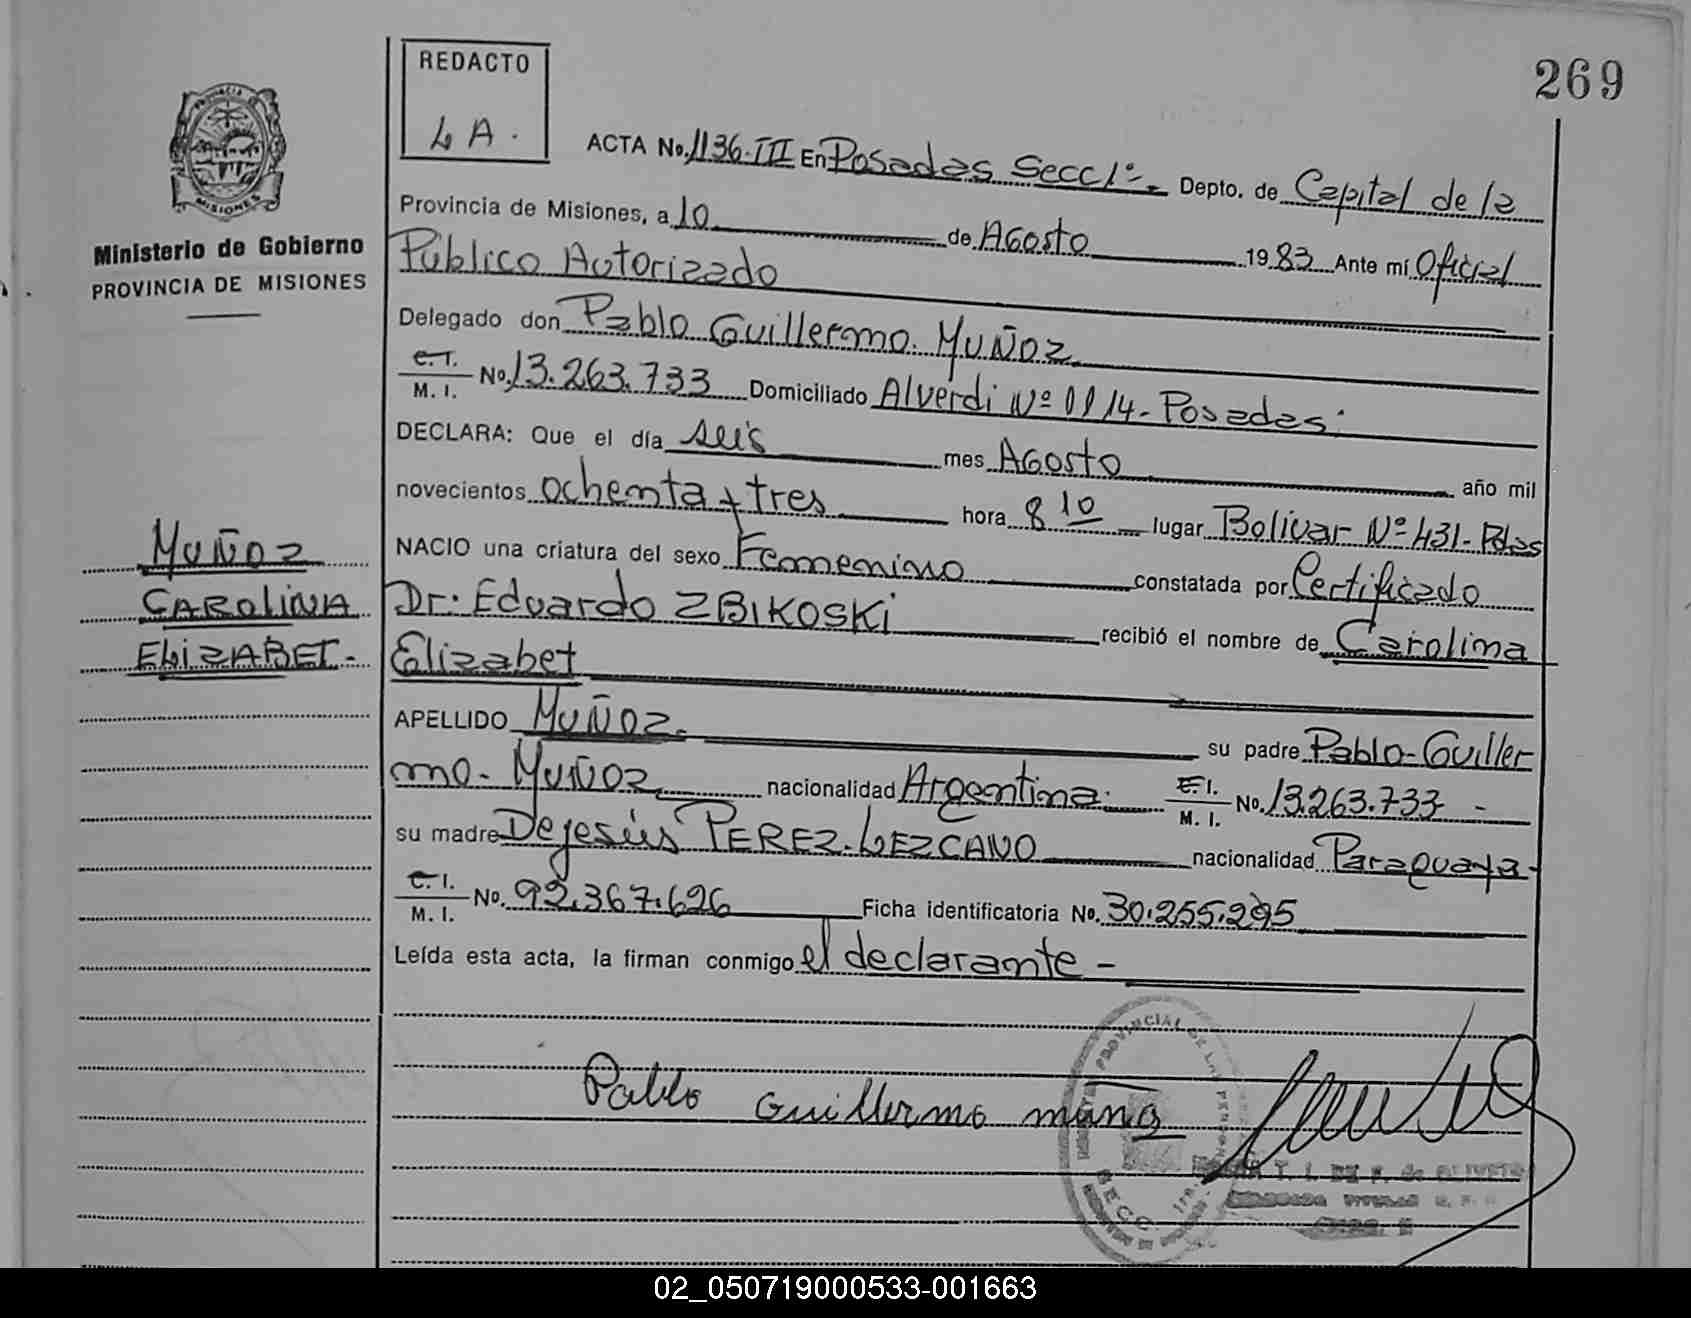 269
REDACTO
L A.
PROVINCIA DE
MISIONES
Ministerio de Gobierno
PROVINCIA DE MISIONES
ACTA No. 1136-III En Posadas Secc 1º. Depto. de Capital de la
Provincia de Misiones, a 10 de Agosto 1983 Ante mí Oficial
Público Autorizado
Delegado don Pablo Guillermo MUÑOZ
C. I.
M. I. No. 13.263.733 Domiciliado Alverdi Nº 1114- Posadas:
DECLARA: Que el día seis mes Agosto año mil
novecientos ochenta y tres hora 8 10 lugar Bolivar Nº 431- Pdas
NACIO una criatura del sexo Femenino constatada por Certificado
Dr: Eduardo ZBIKOSKi recibió el nombre de Carolina
Elizabet
MUÑOZ
CAROLiNA
ELiZABET-
APELLIDO MUÑOZ. su padre Pablo-Guiller
mo- MUÑOZ nacionalidad Argentina. C. I.
M. I. No. 13.263.733 -
su madre Dejesús PEREZ-LEZCANO nacionalidad Paraguaya-
C. I.
M. I. No. 92.367.626 Ficha identificatoria No. 30.255.295
Leída esta acta, la firman conmigo el declarante -
Pablo Guillermo munoz
PROVINCIAL DE LAS PERSONAS
SECC. 1ra
02_050719000533-001663